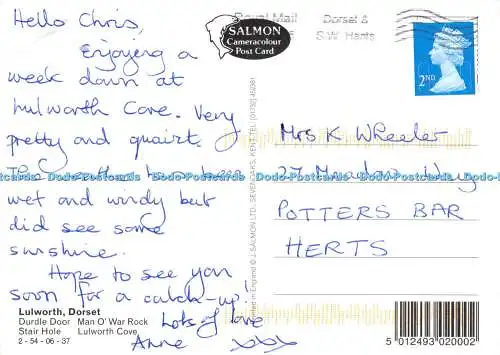 Hello Chris,
Enjoying a
week down at
Lulworth Cove. Very
pretty and quaint.
The weather has been
wet and windy but
did see some
sunshine.
Hope to see you
soon for a catch-up!
Lots of love
Anne xxx
Lulworth, Dorset
Durdle Door Man O' War Rock
Stair Hole Lulworth Cove
2 - 54 - 06 - 37
SALMON
Cameracolour
Post Card
Royal Mail
Dorset &
S.W. Hants
2ND
Mrs K Wheeler
27 Way
POTTERS BAR
HERTS
Printed in England © J. SALMON LTD., SEVENOAKS, KENT. TEL: (01732) 452381
Dodo-Postcards Dodo-Postcards Dodo-Postcards Dodo-Postcards Dodo-Postcards
5 012493 020002